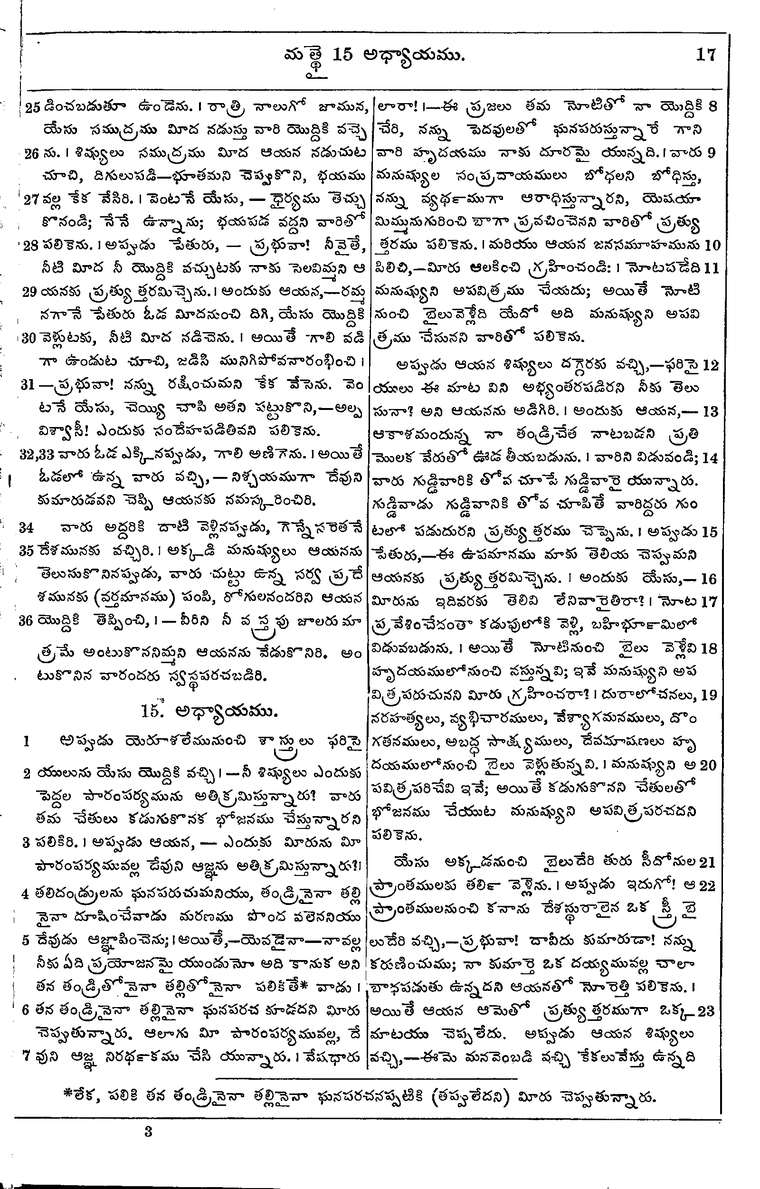 మత్తై 15 అధ్యాయము. 17
25 డించబడుతూ ఉండెను. । రాత్రి నాలుగో జామున,
యేసు సముద్రము మీద నడుస్తు వారి యొద్దికి వచ్చె
26 ను. । శిష్యులు సముద్రము మీద ఆయన నడుచుట
చూచి, దిగులుపడి—భూతమని చెప్పుకొని, భయము
27 వల్ల కేక వేసిరి. । వెంటనే యేసు, — ధైర్యము తెచ్చు
కొనండి; నేనే ఉన్నాను; భయపడ వద్దని వారితో
28 పలికెను. । అప్పుడు పేతురు, — ప్రభువా! నీవైతే,
నీటి మీద నీ యొద్దికి వచ్చుటకు నాకు సెలవిమ్మని ఆ
29 యనకు ప్రత్యుత్తరమిచ్చెను. । అందుకు ఆయన,—రమ్మ
నగానే పేతురు ఓడ మీదనుంచి దిగి, యేసు యొద్దికి
30 వెళ్లుటకు, నీటి మీద నడిచెను. । అయితే గాలి వడి
గా ఉండుట చూచి, జడిసి మునిగిపోవనారంభించి ।
31 —ప్రభువా! నన్ను రక్షించుమని కేక వేసెను. వెం
టనే యేసు, చెయ్యి చాపి అతని పట్టుకొని,—అల్ప
విశ్వాసీ! ఎందుకు సందేహపడితివని పలికెను.
32,33 వారు ఓడ ఎక్కినప్పుడు, గాలి అణిగెను. । అయితే
ఓడలో ఉన్న వారు వచ్చి, — నిశ్చయముగా దేవుని
కుమారుడవని చెప్పి ఆయనకు నమస్కరించిరి.
34 వారు అద్దరికి దాటి వెళ్లినప్పుడు, గెన్నేసరెతనే
35 దేశమునకు వచ్చిరి. । అక్కడి మనుష్యులు ఆయనను
తెలుసుకొనినప్పుడు, వారు చుట్టు ఉన్న సర్వ ప్రదే
శమునకు (వర్తమానము) పంపి, రోగులనందరిని ఆయన
36 యొద్దికి తెప్పించి, । — వీరిని నీ వస్త్రపు జాలరుమా
త్రమే అంటుకొననిమ్మని ఆయనను వేడుకొనిరి. అం
టుకొనిన వారందరు స్వస్థపరచబడిరి.
15. అధ్యాయము.
1 అప్పుడు యెరూశలేమునుంచి శాస్త్రులు ఫరిసై
2 యులును యేసు యొద్దికి వచ్చి। —నీ శిష్యులు ఎందుకు
పెద్దల పారంపర్యమును అతిక్రమిస్తున్నారు? వారు
తమ చేతులు కడుగుకొనక భోజనము చేస్తున్నారని
3 పలికిరి. । అప్పుడు ఆయన, — ఎందుకు మీరును మీ
పారంపర్యమువల్ల దేవుని ఆజ్ఞను అతిక్రమిస్తున్నారు?।
4 తలిదండ్రులను ఘనపరుచుమనియు, తండ్రినైనా తల్లి
నైనా దూషించేవాడు మరణము పొంద వలెననియు
5 దేవుడు ఆజ్ఞాపించెను;।అయితే,—యెవడైనా—నావల్ల
నీకు ఏది ప్రయోజనమై యుండునో అది కానుక అని
తన తండ్రితోనైనా తల్లితోనైనా పలికితే* వాడు ।
6 తన తండ్రినైనా తల్లినైనా ఘనపరచ కూడదని మీరు
చెప్పుతున్నారు. ఆలాగు మీ పారంపర్యమువల్ల, దే
7 వుని ఆజ్ఞ నిరథ౯కము చేసి యున్నారు. । వేషధారు
లారా! ।—ఈ ప్రజలు తమ నోటితో నా యొద్దికి 8
చేరి, నన్ను పెదవులతో ఘనపరుస్తున్నారే గాని
వారి హృదయము నాకు దూరమై యున్నది. । వారు 9
మనుష్యుల సంప్రదాయములు బోధలని బోధిస్తు,
నన్ను వ్యథ౯ముగా ఆరాధిస్తున్నారని, యెషయా
మిమ్మునుగురించి బాగా ప్రవచించెనని వారితో ప్రత్యు
త్తరము పలికెను. । మరియు ఆయన జనసమూహమును 10
పిలిచి,—మీరు ఆలకించి గ్రహించండి: । నోటపడేది 11
మనుష్యుని అపవిత్రము చేయదు; అయితే నోటి
నుంచి బైలువెళ్లేది యేదో అది మనుష్యుని అపవి
త్రము చేసునని వారితో పలికెను.
అప్పుడు ఆయన శిష్యులు దగ్గెరకు వచ్చి,—ఫరిసై 12
యులు ఈ మాట విని అభ్యంతరపడిరని నీకు తెలు
సునా? అని ఆయనను అడిగిరి. । అందుకు ఆయన,— 13
ఆకాశమందున్న నా తండ్రిచేత నాటబడని ప్రతి
మొలక వేరుతో ఊడ తీయబడును. । వారిని విడువండి; 14
వారు గుడ్డివారికి తోవ చూపే గుడ్డివారై యున్నారు.
గుడ్డివాడు గుడ్డివానికి తోవ చూపితే వారిద్దరు గుం
టలో పడుదురని ప్రత్యుత్తరము చెప్పెను. । అప్పుడు 15
పేతురు,—ఈ ఉపమానము మాకు తెలియ చెప్పుమని
ఆయనకు ప్రత్యుత్తరమిచ్చెను. । అందుకు యేసు,— 16
మీరును ఇదివరకు తెలివి లేనివారైతిరా?। నోట 17
ప్రవేశించేదంతా కడుపులోకి వెళ్లి, బహిభూ౯మిలో
విడువబడును. । అయితే నోటినుంచి బైలు వెళ్లేవి 18
హృదయములోనుంచి వస్తున్నవి; ఇవే మనుష్యుని అప
విత్రపరుచునని మీరు గ్రహించరా?। దురాలోచనలు, 19
నరహత్యలు, వ్యభిచారములు, వేశ్యాగమనములు, దొం
గతనములు, అబద్ధ సాక్ష్యములు, దేవదూషణలు హృ
దయములోనుంచి బైలు వెళ్లుతున్నవి. । మనుష్యుని అ 20
పవిత్రపరిచేవి ఇవే; అయితే కడుగుకొనని చేతులతో
భోజనము చేయుట మనుష్యుని అపవిత్రపరచదని
పలికెను.
యేసు అక్కడనుంచి బైలుదేరి తురు సీదోనుల 21
ప్రాంతములకు తలి౯ వెళ్లెను. । అప్పుడు ఇదుగో! ఆ 22
ప్రాంతములనుంచి కనాను దేశస్థురాలైన ఒక స్త్రీ బై
లుదేరి వచ్చి,—ప్రభువా! దావీదు కుమారుడా! నన్ను
కరుణించుము; నా కుమార్తె ఒక దయ్యమువల్ల చాలా
బాధపడుతు ఉన్నదని ఆయనతో మొరెత్తి పలికెను. ।
అయితే ఆయన ఆమెతో ప్రత్యుత్తరముగా ఒక్క 23
మాటయు చెప్పలేదు. అప్పుడు ఆయన శిష్యులు
వచ్చి,—ఈమె మనవెంబడి వచ్చి కేకలువేస్తు ఉన్నది
*లేక, పలికి తన తండ్రినైనా తల్లినైనా ఘనపరచనప్పటికి (తప్పులేదని) మీరు చెప్పుతున్నారు.
3